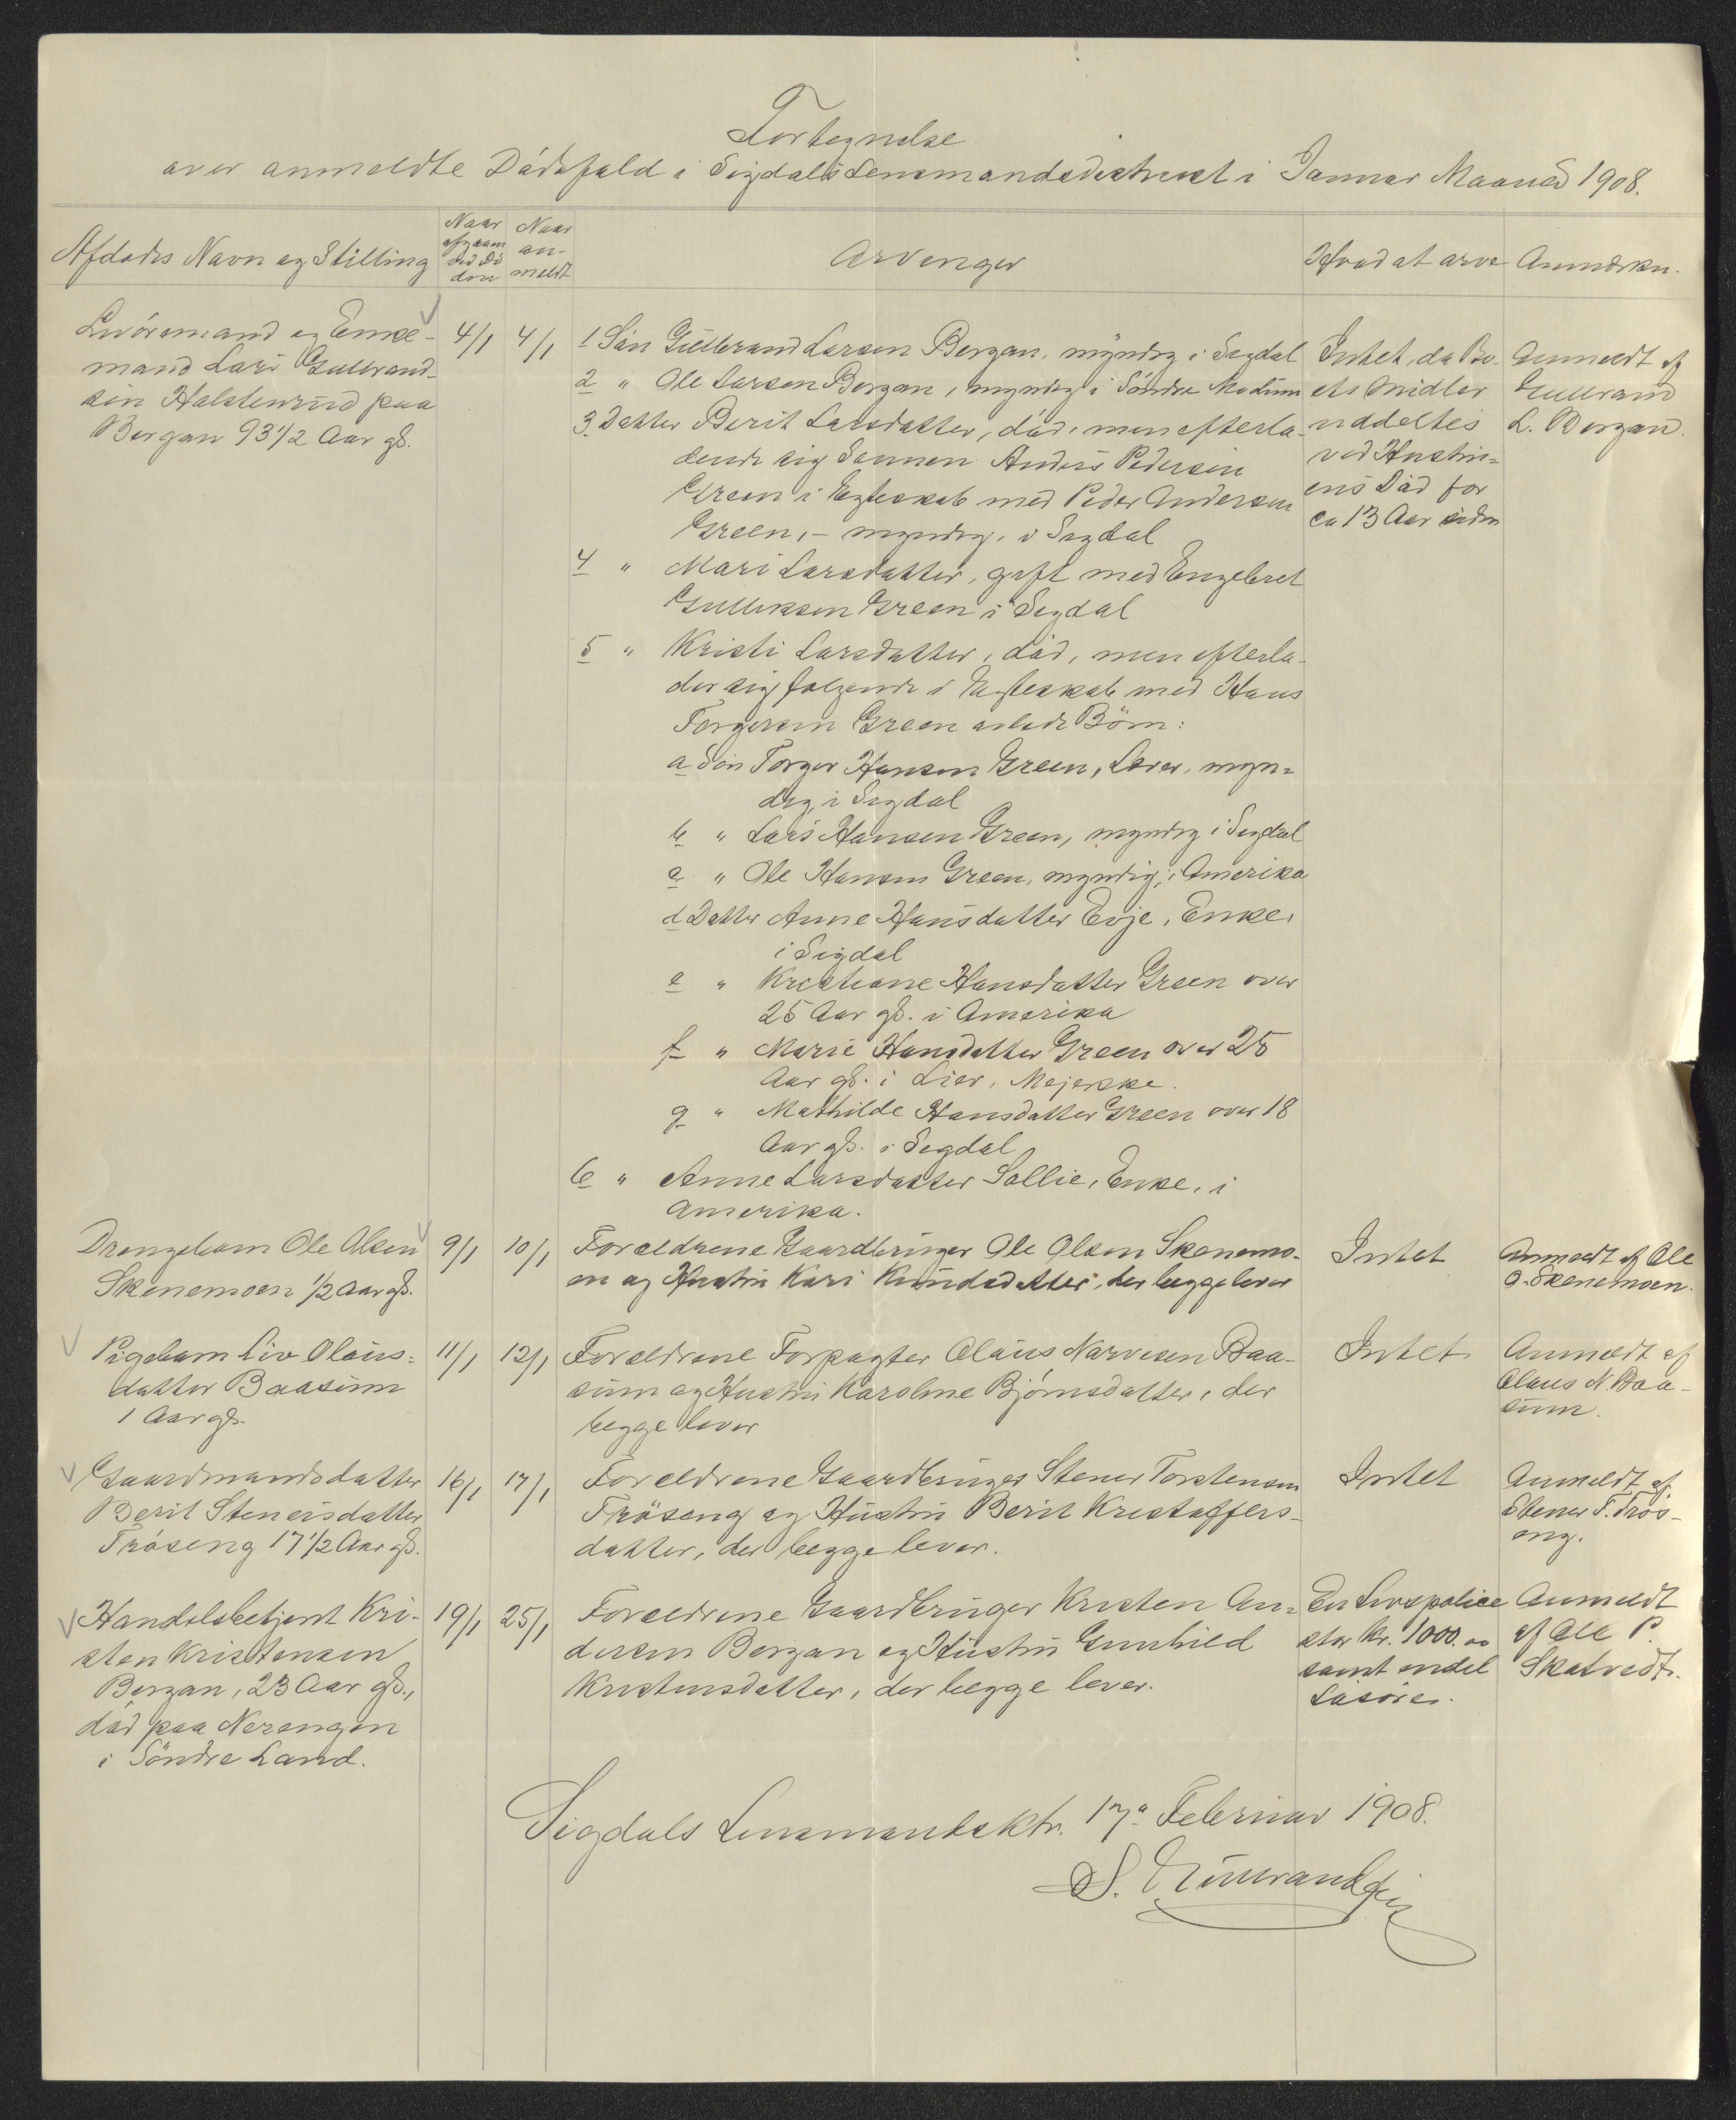 Fortegnelse
over anmeldte Dødsfald i Sigdals Lensmandsdistrikt i Januar Maaned 1908.
Afdødes Navn og Stilling
Naar afgaaet ved Dø-
den
Naar
an-
meldt
Arvinger
Hvad at arve
Anmærkn.
Livøresmand og Enke-
mand Lars Gulbrand-
sen Halstenrud paa
Bergan 93 1/2 Aar gl.
4/1
4/1
1 Søn Gulbrand Larsen Bergan, myndig i Sigdal
2 " Ole Larsen Bergan, myndig i Søndre Modum
3 Datter Berit Larsdatter, død, men efterla-
dende sig Sønnen Anders Pedersen
Green i Egteskab med Peder Andersen
Green, - myndig, i Sigdal
4 " Mari Larsdatter, gift med Engebret
Gulliksen Green i Sigdal
5 " Kristi Larsdatter, død, men efterla-
der sig følgende i Egteskab med Hans
Torgersen Green avlede Børn:
a Søn Torger Hansen Green, Lærer, myn-
dig, i Sigdal
b " Lars Hansen Green, myndig i Sigdal
c " Ole Hansen Green, myndig, i Amerika
d Datter Anne Hansdatter Evje, Enke,
i Sigdal
e " Kristiane Hansdatter Green over
25 Aar gl. i Amerika
f " Marie Hansdatter Green over 25
Aar gl. i Lier, Mejerske.
g " Mathilde Hansdatter Green over 18
Aar gl. i Sigdal
6 " Anne Larsdatter Sollie, Enke, i
Amerika.
Intet, da Bo-
ets Midler
uddeltes
ved Hustru-
ens Død for
ca 13 Aar siden
Anmeldt af
Gulbrand
L. Bergan.
Drengebarn Ole Olsen
Skenemoen 1/2 Aar gl.
9/1
10/1
Forældrene Gaardbruger Ole Olsen Skenemo-
en og Hustru Kari Knudsdatter, der begge lever
Intet
Anmeldt af Ole
O. Skenemoen.
Pigebarn Liv Olaus-
datter Baasum
1 Aar gl.
11/1
12/1
Forældrene Forpagter Olaus Narvesen Baa-
sum og Hustru Karoline Bjørnsdatter, der
begge lever
Intet
Anmeldt af
Olaus N. Baa-
sum.
Gaardmandsdatter
Berit Stenersdatter
Frøseng 17 1/2 Aar gl.
16/1
17/1
Forældrene Gaardbruger Stener Torstensen
Frøseng og Hustru Berit Kristoffers-
datter, der begge lever.
Intet
Anmeldt af
Stener T. Frøs-
eng.
Handelsbetjent Kri-
sten Kristensen
Bergan, 23 Aar gl.,
død paa Nerengen
i Søndre Land.
19/1
25/1
Forældrene Gaardbruger Kristen An-
dersen Bergan og Hustru Gunhild
Kristensdatter, der begge lever.
En Livspolice
stor kr. 1000.00
samt endel
Løsøre.
Anmeldt
af Ole P.
Skatvedt.
Sigdals Lensmandsktr. 17de Februar 1908.
S. Gulbrandsen